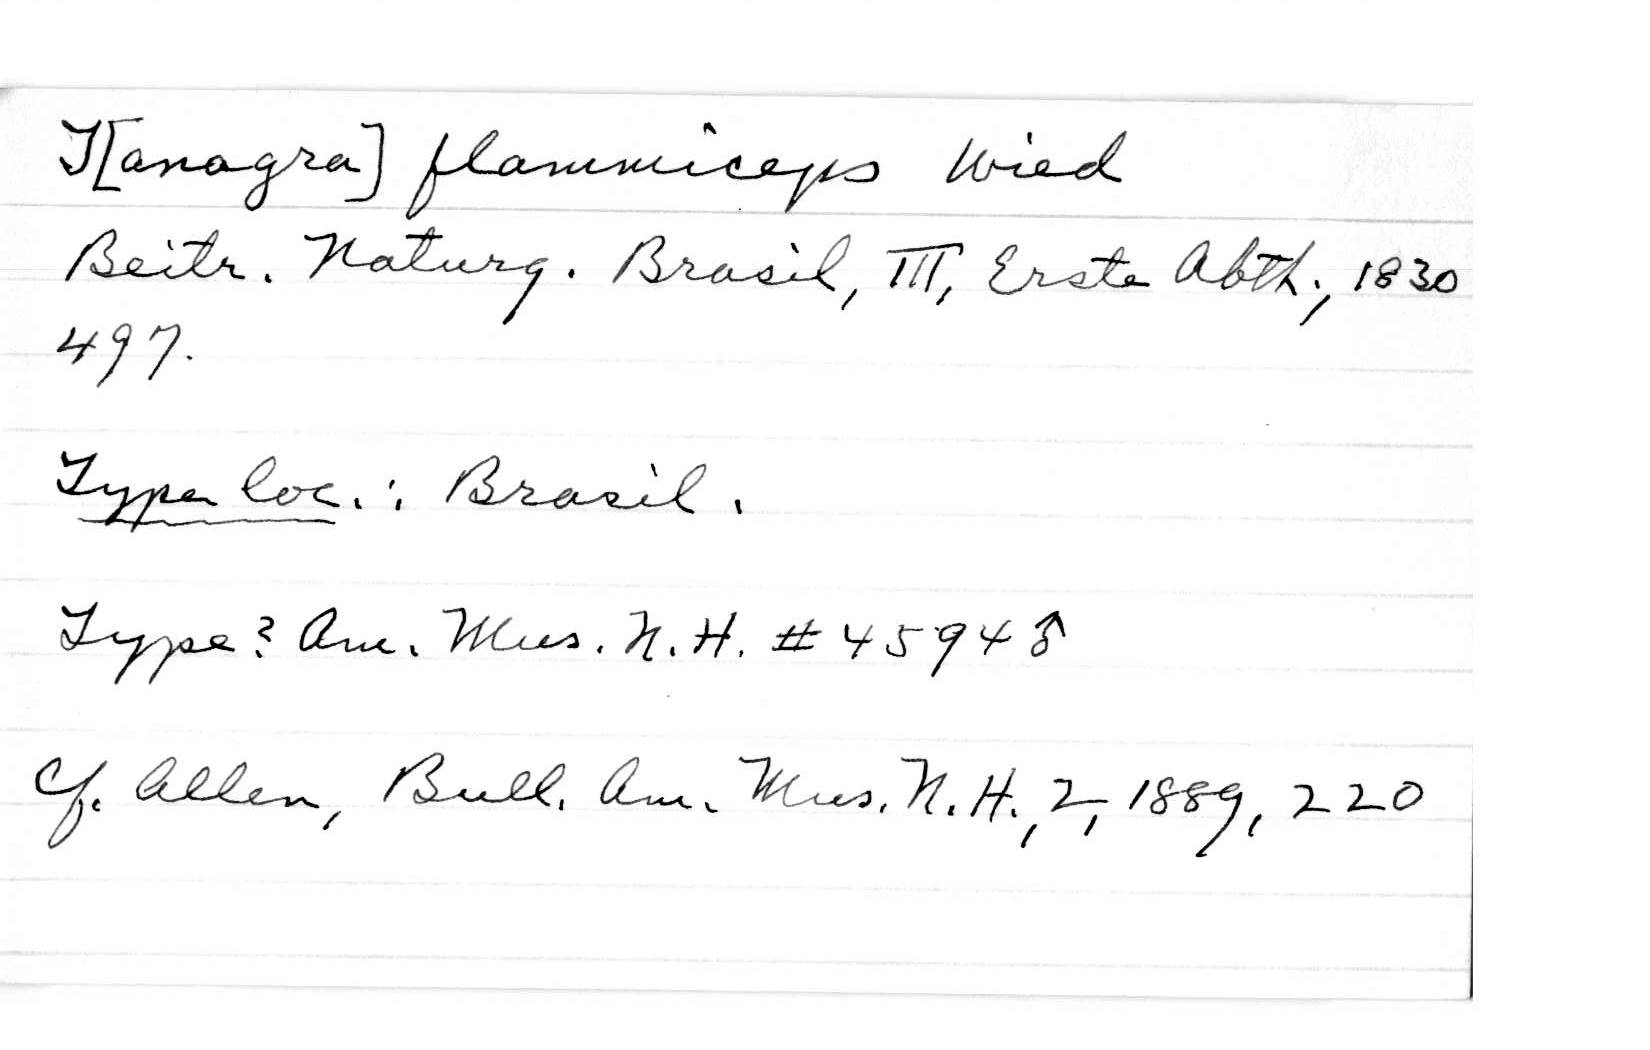 T[anagra] flammiceps Wied
Beitr. Naturg. Brasil, III, Erste Abth., 1830
497.
Type loc.: Brazil.
Type? Am. Mus. N. H. # 4594 ♂
Cf. Allen, Bull. Am. Mus. N. H., 2, 1889, 220